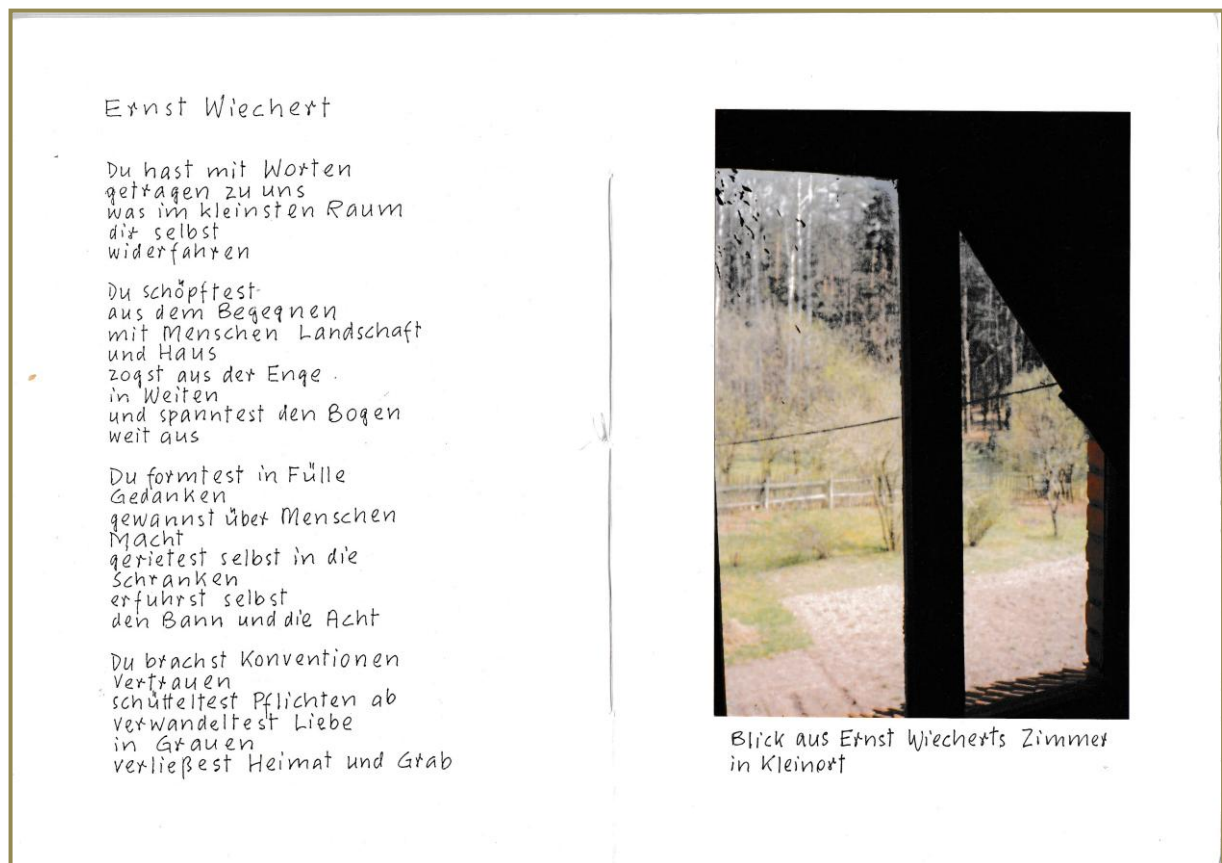 Ernst Wiechert
Du hast mit Worten
getragen zu uns
was im kleinsten Raum
dir selbst
widerfahren
Du schöpftest
aus dem Begegnen
mit Menschen Landschaft
und Haus
zogst aus der Enge
in Weiten
und spanntest den Bogen
weit aus
Du formtest in Fülle
Gedanken
gewannst über Menschen
Macht
gerietest selbst in die
Schranken
erfuhrst selbst
den Bann und die Acht
Du brachst Konventionen
Vertrauen
schütteltest Pflichten ab
verwandeltest Liebe
in Grauen
verließest Heimat und Grab
Blick aus Ernst Wiecherts Zimmer
in Kleinort